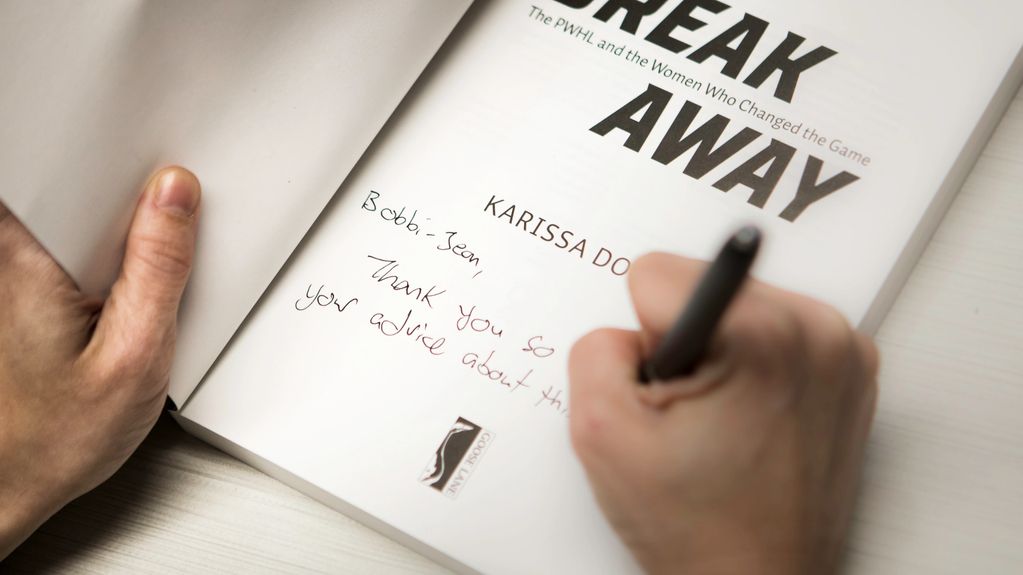 BREAK
The PWHL and the Women Who Changed the Game
AWAY
KARISSA DO
Bobbi-Jean,
Thank you so
your advice about thi
GOOSE LANE